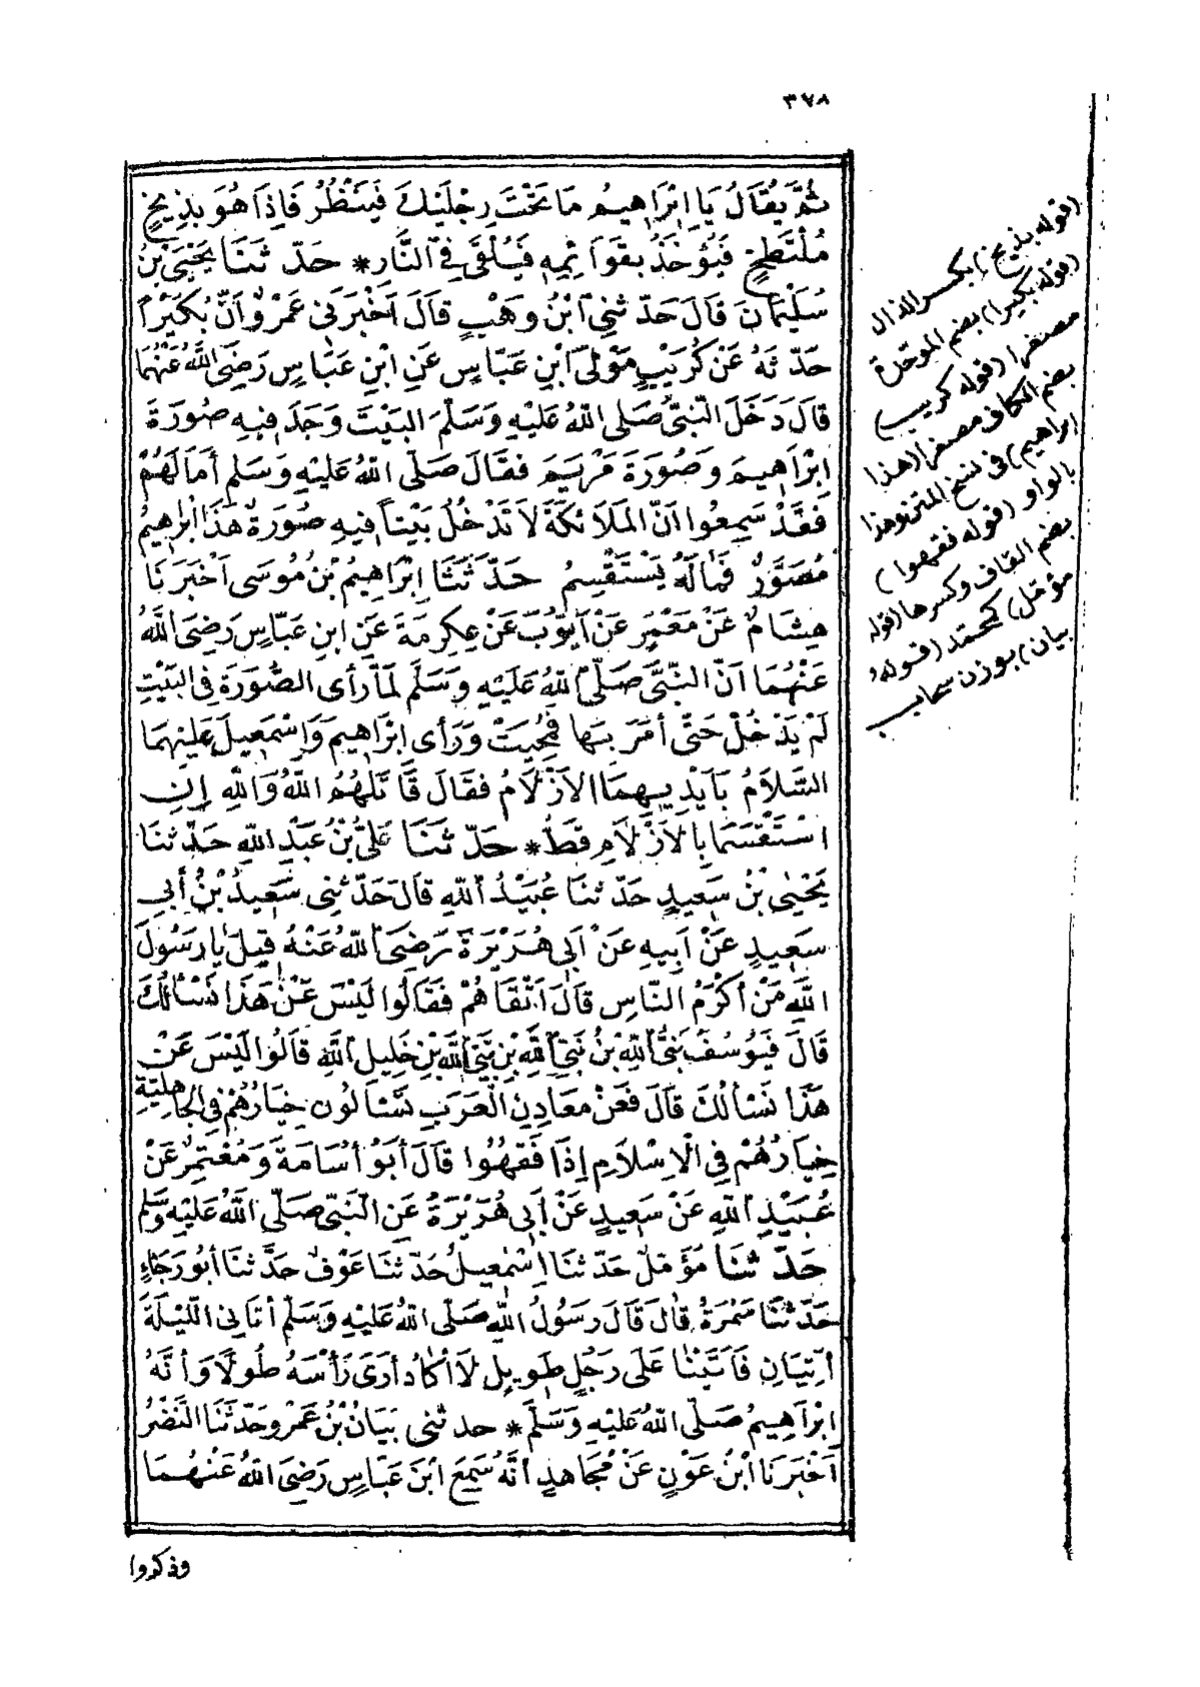 ٣٧٨
ثُمَّ يُقَالُ يَا اِبْرَاهِيمُ مَا تَحْتَ رِجْلَيْكَ فَيَنْظُرُ فَاِذَا هُوَ بِذِيخٍ
مُلْتَطِخٍ فَيُؤْخَذُ بِقَوَائِمِهِ فَيُلْقَى فِى النَّارِ * حَدَّثَنَا يَحْيَى بْنُ
سُلَيْمَانَ قَالَ حَدَّثَنِى ابْنُ وَهْبٍ قَالَ اَخْبَرَنِى عَمْرٌو اَنَّ بُكَيْرًا
حَدَّثَهُ عَنْ كُرَيْبٍ مَوْلَى ابْنِ عَبَّاسٍ عَنِ ابْنِ عَبَّاسٍ رَضِىَ اللّٰهُ عَنْهُمَا
قَالَ دَخَلَ النَّبِىُّ صَلَّى اللّٰهُ عَلَيْهِ وَسَلَّمَ الْبَيْتَ وَجَدَ فِيهِ صُورَةَ
اِبْرَاهِيمَ وَصُورَةَ مَرْيَمَ فَقَالَ صَلَّى اللّٰهُ عَلَيْهِ وَسَلَّمَ أَمَا لَهُمْ
فَقَدْ سَمِعُوا اَنَّ الْمَلَائِكَةَ لَا تَدْخُلُ بَيْتًا فِيهِ صُورَةٌ هَذَا اِبْرَاهِيمُ
مُصَوَّرٌ فَمَا لَهُ يَسْتَقْسِمُ حَدَّثَنَا اِبْرَاهِيمُ بْنُ مُوسَى اَخْبَرَنَا
هِشَامٌ عَنْ مَعْمَرٍ عَنْ اَيُّوبَ عَنْ عِكْرِمَةَ عَنِ ابْنِ عَبَّاسٍ رَضِىَ اللّٰهُ
عَنْهُمَا اَنَّ النَّبِىَّ صَلَّى اللّٰهُ عَلَيْهِ وَسَلَّمَ لَمَّا رَأَى الصُّوَرَةَ فِى الْبَيْتِ
لَمْ يَدْخُلْ حَتَّى أَمَرَ بِهَا فَمُحِيَتْ وَرَأَى اِبْرَاهِيمَ وَاِسْمٰعِيلَ عَلَيْهِمَا
السَّلَامُ بِاَيْدِيهِمَا الْاَزْلَامُ فَقَالَ قَاتَلَهُمُ اللّٰهُ وَاللّٰهِ اِنِ
اسْتَقْسَمَا بِالْاَزْلَامِ قَطُّ * حَدَّثَنَا عَلِىُّ بْنُ عَبْدِ اللّٰهِ حَدَّثَنَا
يَحْيٰى بْنُ سَعِيدٍ حَدَّثَنَا عُبَيْدُ اللّٰهِ قَالَ حَدَّثَنِى سَعِيدُ بْنُ أَبِى
سَعِيدٍ عَنْ اَبِيهِ عَنْ اَبِى هُرَيْرَةَ رَضِىَ اللّٰهُ عَنْهُ قِيلَ يَا رَسُولَ
اللّٰهِ مَنْ أَكْرَمُ النَّاسِ قَالَ اَتْقَاهُمْ فَقَالُوا لَيْسَ عَنْ هَذَا نَسْأَلُكَ
قَالَ فَيُوسُفُ نَبِىُّ اللّٰهِ بْنُ نَبِىِّ اللّٰهِ بْنِ نَبِىِّ اللّٰهِ بْنِ خَلِيلِ اللّٰهِ قَالُوا لَيْسَ عَنْ
هَذَا نَسْأَلُكَ قَالَ فَعَنْ مَعَادِنِ الْعَرَبِ تَسْأَلُونِ خِيَارُهُمْ فِى الْجَاهِلِيَّةِ
خِيَارُهُمْ فِى الْاِسْلَامِ اِذَا فَقُهُوا قَالَ أَبُو أُسَامَةَ وَمُعْتَمِرٌ عَنْ
عُبَيْدِ اللّٰهِ عَنْ سَعِيدٍ عَنْ أَبِى هُرَيْرَةَ عَنِ النَّبِىِّ صَلَّى اللّٰهُ عَلَيْهِ وَسَلَّمَ
حَدَّثَنَا مُؤَمَّلٌ حَدَّثَنَا اِسْمٰعِيلُ حَدَّثَنَا عَوْفٌ حَدَّثَنَا أَبُو رَجَاءٍ
حَدَّثَنَا سَمُرَةُ قَالَ قَالَ رَسُولُ اللّٰهِ صَلَّى اللّٰهُ عَلَيْهِ وَسَلَّمَ أَتَانِى اللَّيْلَةَ
آتِيَانِ فَاَتَيْنَا عَلَى رَجُلٍ طَوِيلٍ لَا أَكَادُ أَرَى رَأْسَهُ طُولًا وَأَنَّهُ
اِبْرَاهِيمُ صَلَّى اللّٰهُ عَلَيْهِ وَسَلَّمَ * حدثنى بَيَانُ بْنُ عَمْرٍو حَدَّثَنَا النَّضْرُ
اَخْبَرَنَا ابْنُ عَوْنٍ عَنْ مُجَاهِدٍ أَنَّهُ سَمِعَ ابْنَ عَبَّاسٍ رَضِىَ اللّٰهُ عَنْهُمَا
وذكروا
(قوله بذيخ) بكسر الذال
(قوله بكيرا) بضم الموحدة
مصغرا (قوله كريب)
بضم الكاف مصغرا (هذا
ابراهيم) فى نسخ المتن وهذا
بالواو (قوله فقهوا)
بضم القاف وكسرها (قوله
مؤمل) كمحمد (قوله
بيان) بوزن سحاب